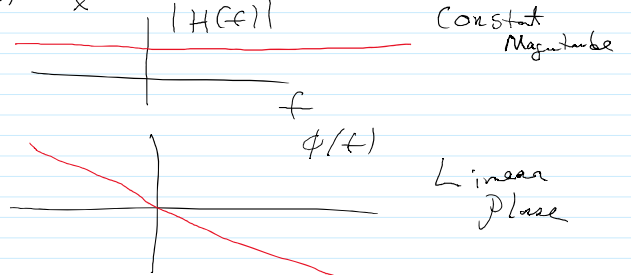 x
|H(f)|
Constat
Magnitude
f
φ(f)
Linear
Phase